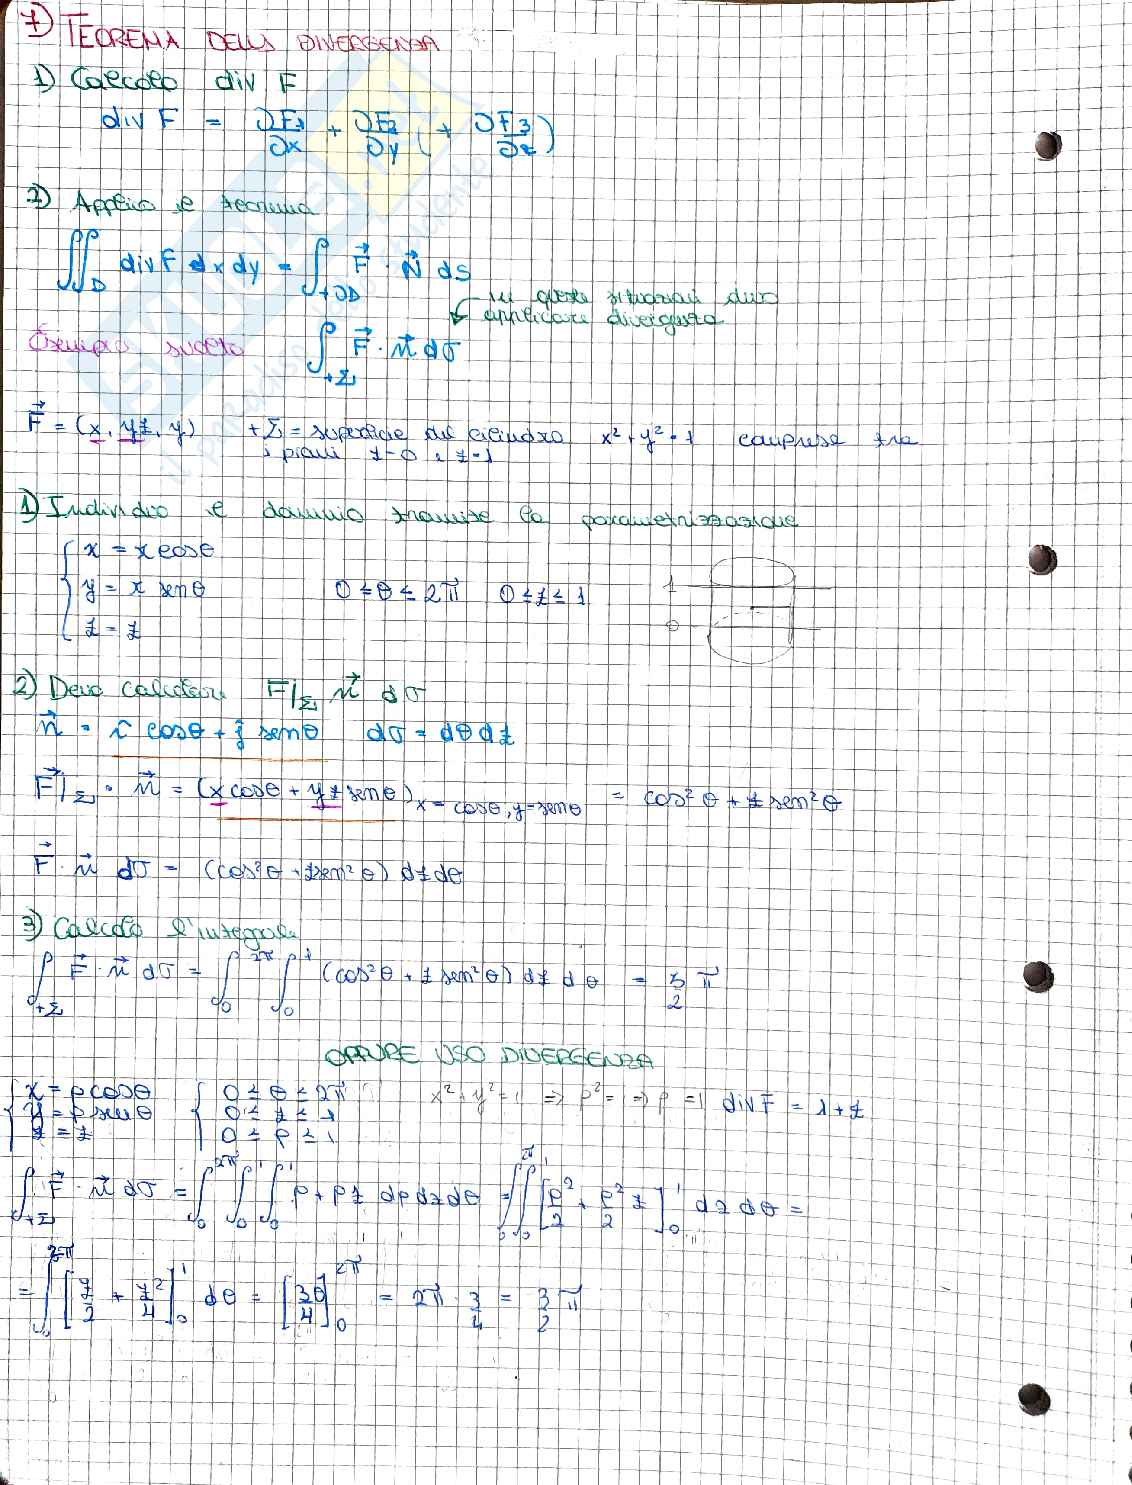 7) TEOREMA DELLA DIVERGENZA
1) Calcolo div F
div F = ∂F1/∂x + ∂F2/∂y (+ ∂F3/∂z)
2) Applico il teorema
∬_D div F dx dy = ∫_{+∂D} F⃗ · N⃗ ds
in queste situazioni devo
applicare divergenza
Esempio svolto ∫_{+Σ} F⃗ · n⃗ dσ
F⃗ = (x, yz, y) +Σ = superficie del cilindro x² + y² = 1 compresa tra
i piani z=0 e z=1
1) Individuo il dominio tramite la parametrizzazione
{ x = x cosθ
y = x senθ 0 ≤ θ ≤ 2π 0 ≤ z ≤ 1
z = z
1
0
2) Devo calcolare F|_Σ n⃗ dσ
n⃗ = î cosθ + ĵ senθ dσ = dθ dz
F⃗|_Σ · n⃗ = (x cosθ + yz senθ)_{x = cosθ, y = senθ} = cos²θ + z sen²θ
F⃗ · n⃗ dσ = (cos²θ + z sen²θ) dz dθ
3) Calcolo l'integrale
∫_{+Σ} F⃗ · n⃗ dσ = ∫_0^{2π} ∫_0^1 (cos²θ + z sen²θ) dz dθ = 3/2 π
OPPURE USO DIVERGENZA
{ x = ρ cosθ { 0 ≤ θ ≤ 2π x² + y² = 1 ⇒ ρ² = 1 ⇒ ρ = 1 div F = 1 + z
y = ρ senθ 0 ≤ z ≤ 1
z = z 0 ≤ ρ ≤ 1
∫_{+Σ} F⃗ · n⃗ dσ = ∫_0^{2π} ∫_0^1 ∫_0^1 ρ + ρz dρ dz dθ = ∫_0^{2π} ∫_0^1 [ρ²/2 + ρ²/2 z]_0^1 dz dθ =
= ∫_0^{2π} [z/2 + z²/4]_0^1 dθ = [3θ/4]_0^{2π} = 2π · 3/4 = 3/2 π